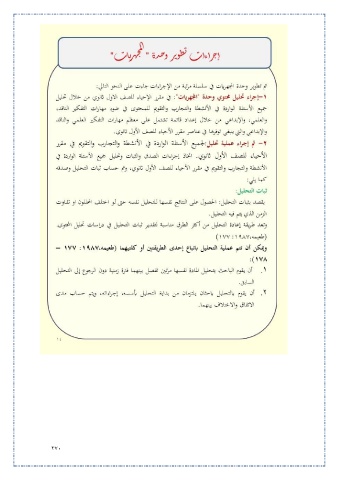 إجراءات تطوير وحدة "المجهريات"
تم تطوير وحدة المجهريات في سلسلة مرتبة من الإجراءات جاءت على النحو التالي:
١-إجراء تحليل محتوي وحدة "المجهريات": في مقرر الأحياء للصف الأول ثانوي من خلال تحليل
جميع الأسئلة الواردة في الأنشطة والتجارب والتقويم للمحتوى في ضوء مهارات التفكير الناقد،
والعلمي، والإبداعي من خلال إعداد قائمة تشتمل على معظم مهارات التفكير العلمي والناقد
والإبداعي والتي ينبغي توفرها في عناصر مقرر الأحياء للصف الأول ثانوي.
٢- تم إجراء عملية تحليل لجميع الأسئلة الواردة في الأنشطة والتجارب والتقويم في مقرر
الأحياء للصف الأول ثانوي، اتخاذ إجراءات الصدق والثبات وتحليل جميع الأسئلة الواردة في
الأنشطة والتجارب والتقويم في مقرر الأحياء للصف الأول ثانوي، وتم حساب ثبات التحليل وصدقه
كما يلي:
ثبات التحليل:
يقصد بثبات التحليل: الحصول على النتائج نفسها للتحليل نفسه حتى لو اختلف المحللون أو تفاوت
الزمن الذي يتم فيه التحليل.
وتعد طريقة إعادة التحليل من أكثر الطرق مناسبة لتقدير ثبات التحليل في دراسات تحليل المحتوى.
(طعيمه،١٩٨٧: ١٧٧)
ويمكن أن تتم عملية التحليل باتباع إحدى الطريقتين أو كلتيهما (طعيمه،١٩٨٧: ١٧٧ –
١٧٨):
١. أن يقوم الباحث بتحليل المادة نفسها مرتين تفصل بينهما فترة زمنية دون الرجوع إلى التحليل
السابق.
٢. أن يقوم بالتحليل باحثان يلتزمان من بداية التحليل بأسسه، إجراءاته، ويتم حساب مدى
الاتفاق والاختلاف بينهما.
٢٧٠